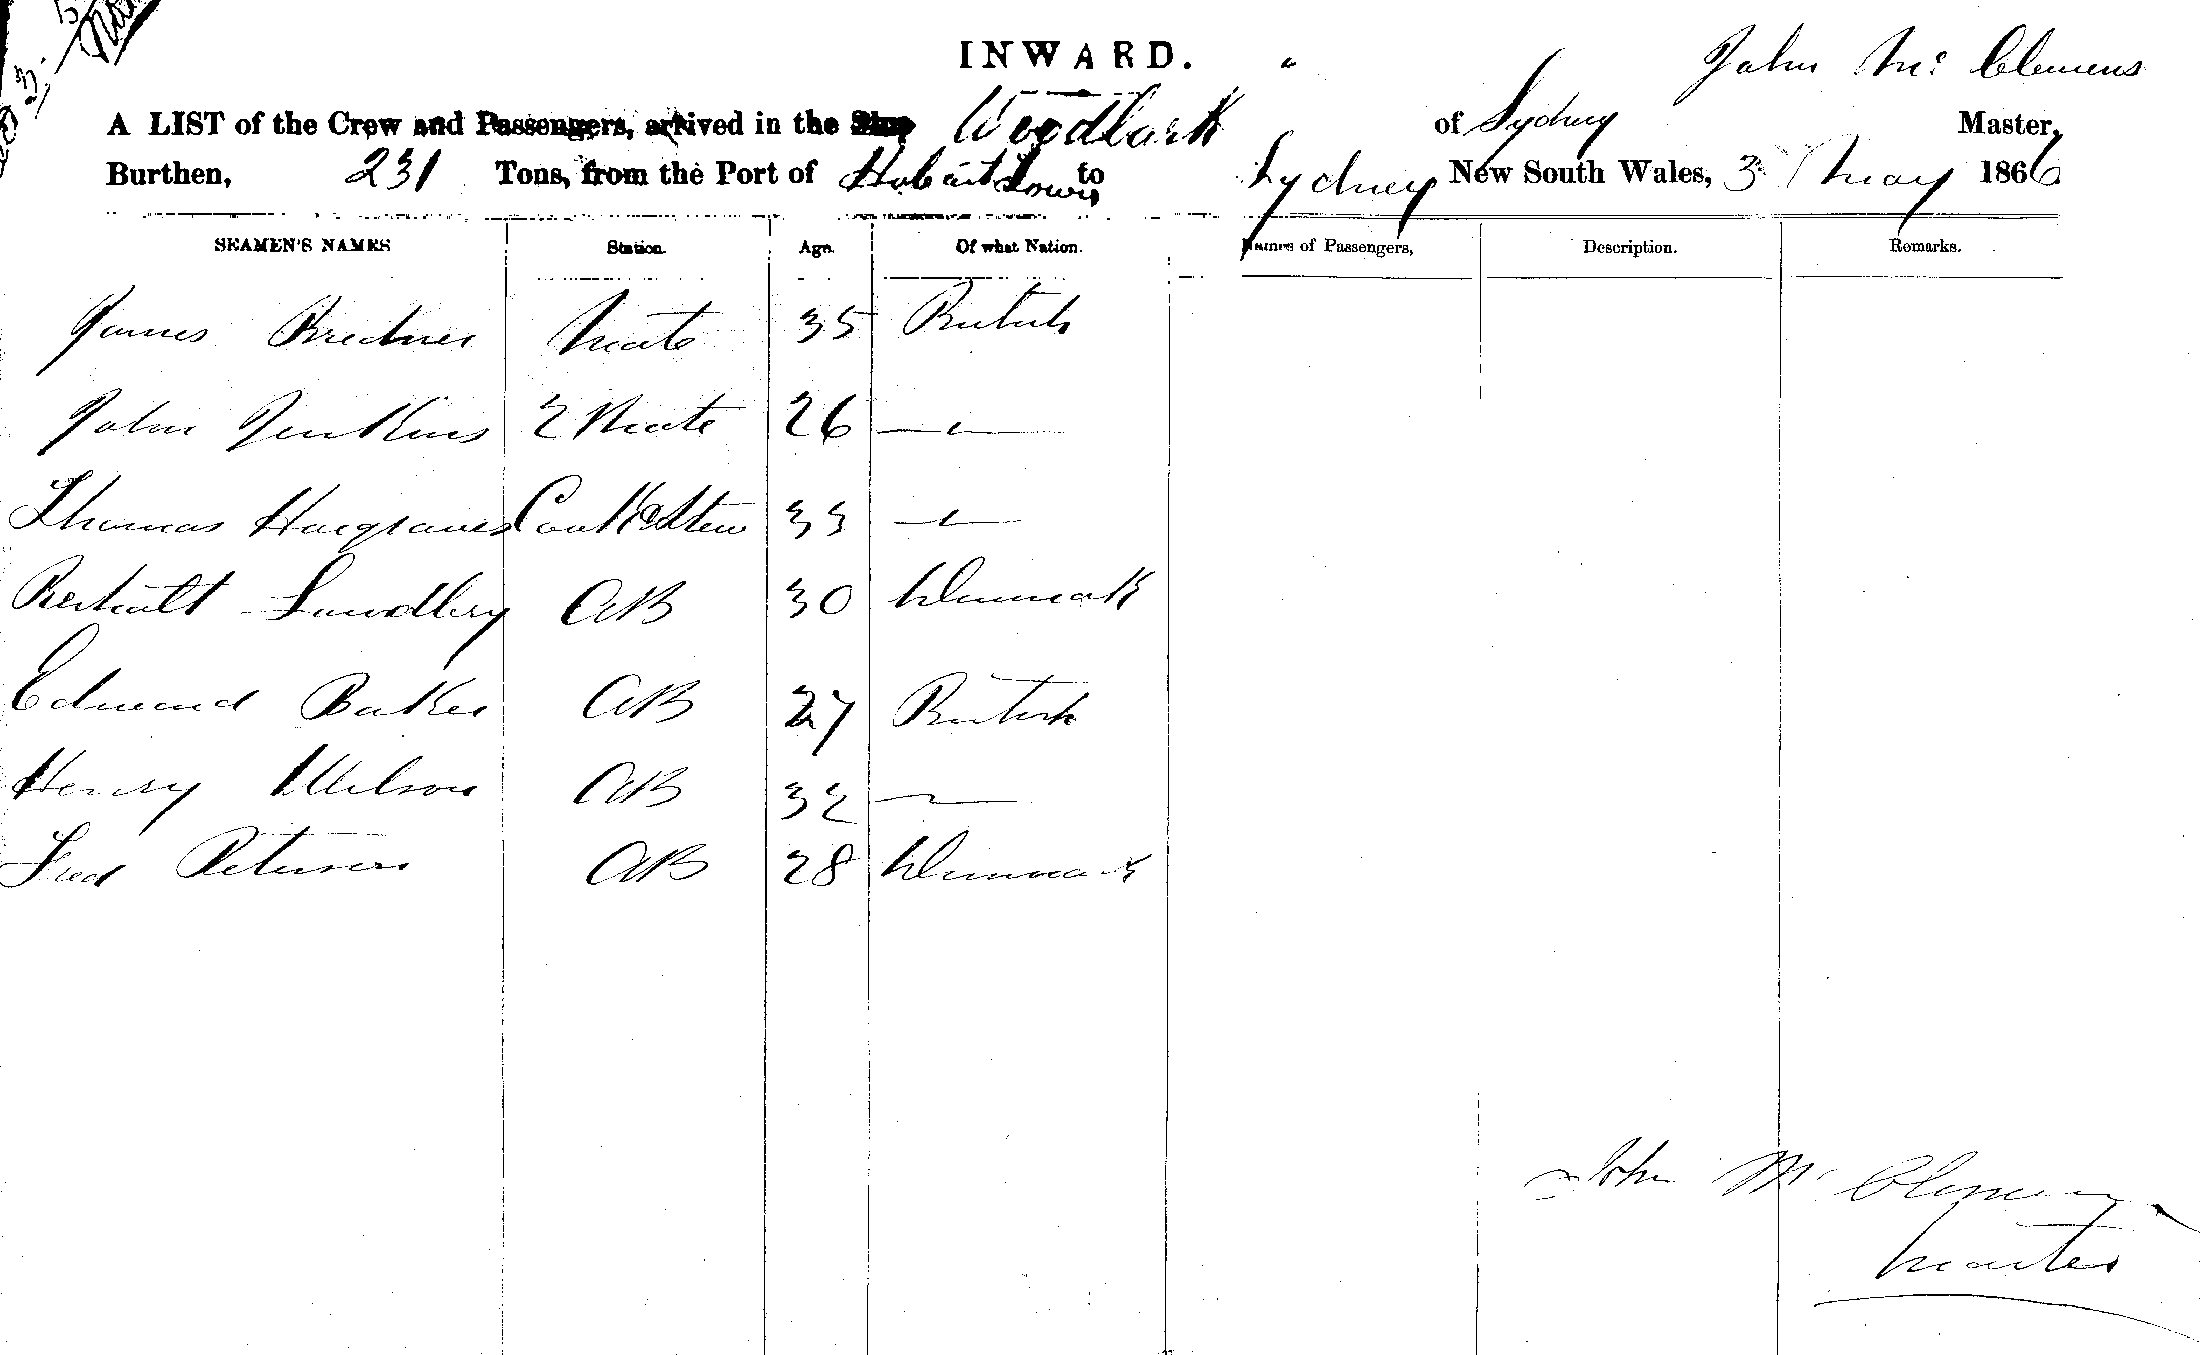 INWARD.
John Mc Clemens
A LIST of the Crew and Passengers, arrived in the Ship Woodlark of Sydney Master,
Burthen, 231 Tons, from the Port of Hobart Town to Sydney New South Wales, 3 May 1866
SEAMEN'S NAMES Station. Age. Of what Nation. Names of Passengers, Description. Remarks.
James Mate 35 British
John Jenkins 2 Mate 26 —"—
Thomas Hargraves Cook & Stew 33 —"—
Lundbey AB 30 Denmark
Edmund Baker AB 27 British
Henry Wilson AB 32 —"—
Fred Petersen AB 28 Denmark
John Mc Clemens
Master